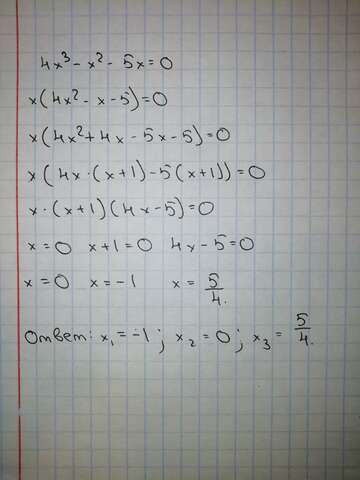 4x³ - x² - 5x = 0
x(4x² - x - 5) = 0
x(4x² + 4x - 5x - 5) = 0
x(4x · (x+1) - 5(x+1)) = 0
x · (x+1)(4x - 5) = 0
x = 0 x + 1 = 0 4x - 5 = 0
x = 0 x = -1 x = 5/4.
Ответ: x₁ = -1; x₂ = 0; x₃ = 5/4.